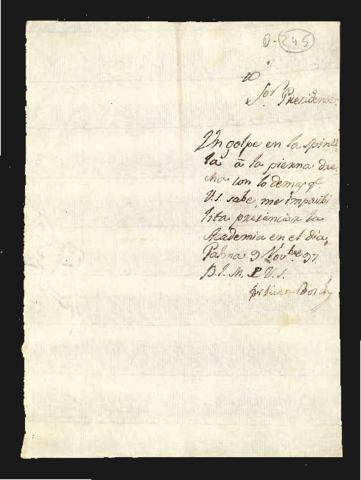 D-245
Sor. Presidente
Un golpe en la Spinil
la d la pierna dre
cha con lo demas q
V.S. sabe, me imposibi
lita presenciar la
Academia en el dia.
Palma 9 Novbre 97.
B. L. M. V.S.
Bosch